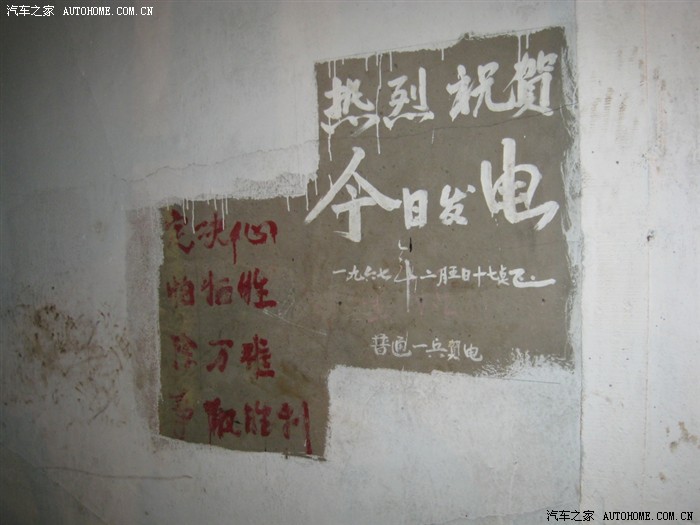 汽车之家 AUTOHOME.COM.CN
热烈祝贺
今日发电
一九六七年二月五日十七点正.
普通一兵贺电
定决心
怕牺牲
除万难
争取胜利
汽车之家 AUTOHOME.COM.CN